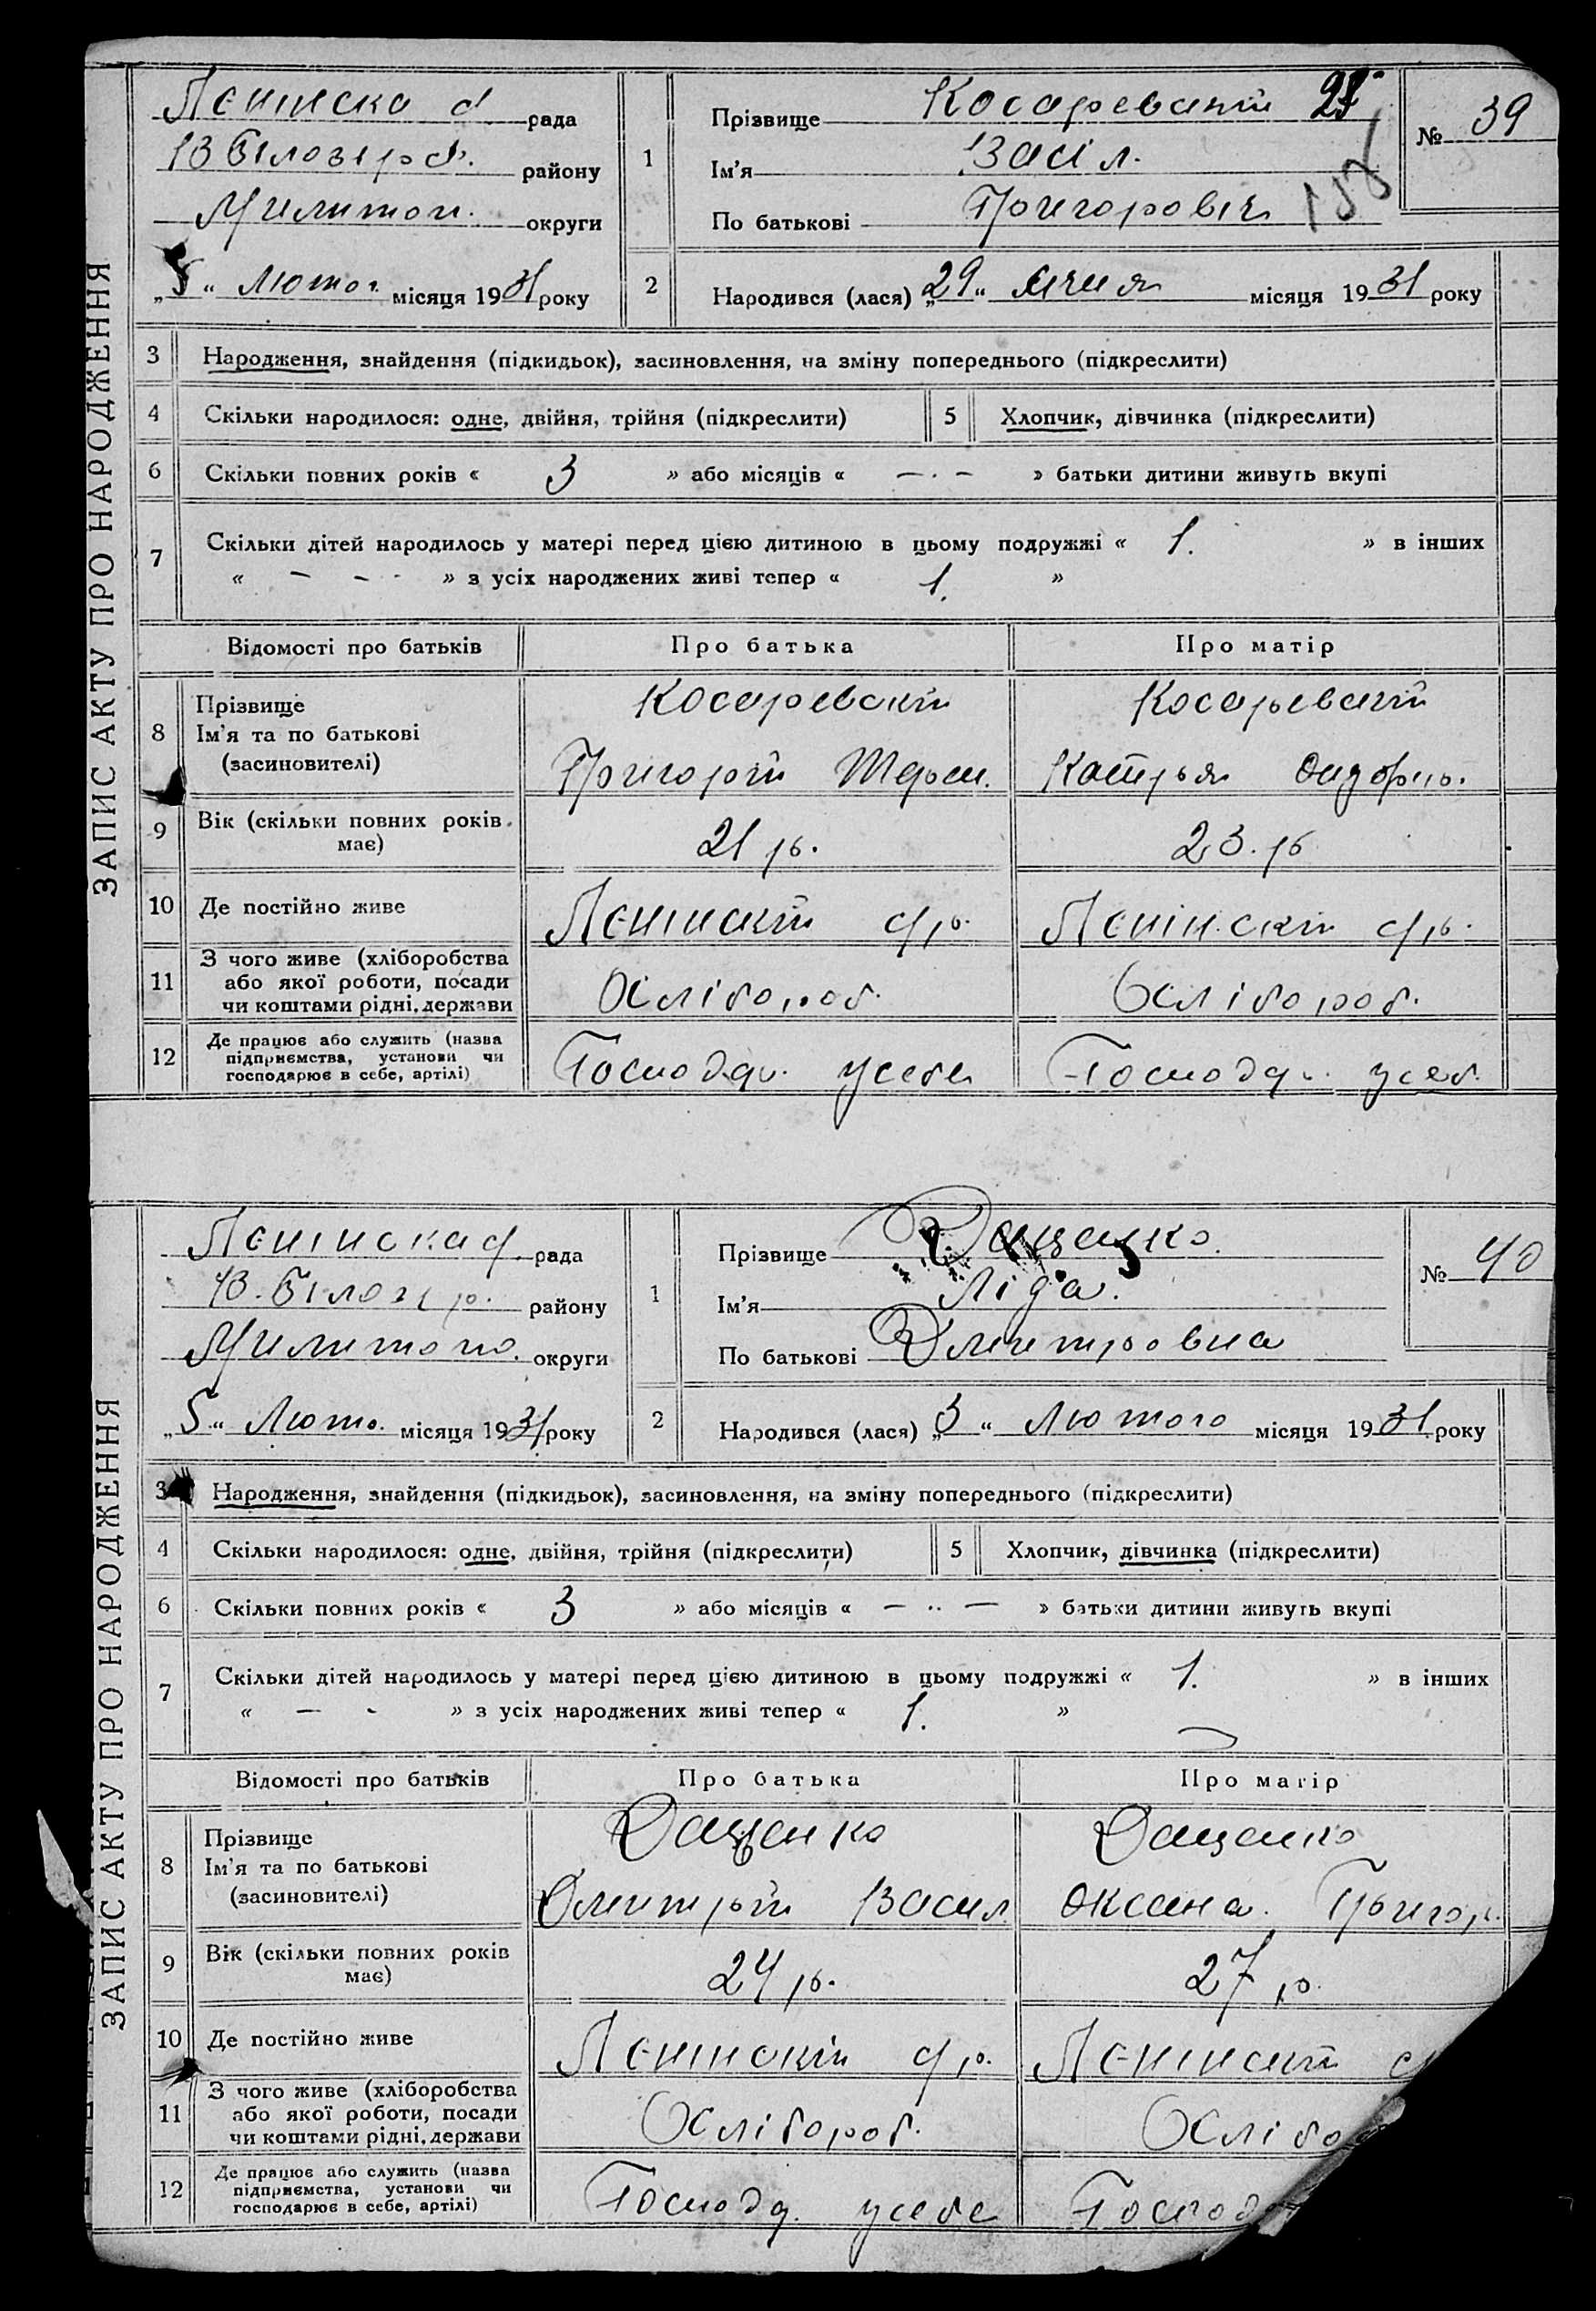 ЗАПИС АКТУ ПРО НАРОДЖЕННЯ
Лєнинска с. рада
В Білозерс. району
Милитоп. округи
„5“ Лютог. місяця 1931 року
1 Прізвище Косаревский
Ім'я Васіл.
По батькові Григоровіч
№ 39
2 Народився (лася) „29“ січня місяця 1931 року
3 Народження, знайдення (підкидьок), засиновлення, на зміну попереднього (підкреслити)
4 Скільки народилося: одне, двійня, трійня (підкреслити) 5 Хлопчик, дівчинка (підкреслити)
6 Скільки повних років « 3 » або місяців « — . — » батьки дитини живуть вкупі
7 Скільки дітей народилось у матері перед цією дитиною в цьому подружжі « 1. » в інших
« — - - » з усіх народжених живі тепер « 1. »
Відомості про батьків Про батька Про матір
8 Прізвище Косаревский Косаревский
Ім'я та по батькові
(засиновителі) Григорий Катрья
9 Вік (скільки повних років має) 21 р. 23. р
10 Де постійно живе Лєнинский с/р. Лєнінский с/р.
11 З чого живе (хліборобства або якої роботи, посади чи коштами рідні, держави Хлібороб. Хлібороб.
12 Де працює або служить (назва підприємства, установи чи господарює в себе, артілі) Господ. усебе Господ. усеб.
ЗАПИС АКТУ ПРО НАРОДЖЕННЯ
Лєнинска с. рада
В. Білозер. району
Милитопо. округи
„5“ Люто. місяця 1931 року
1 Прізвище Даценко.
Ім'я Ліда.
По батькові Дмитровна
№ 40
2 Народився (лася) „3“ Лютого місяця 1931 року
3 Народження, знайдення (підкидьок), засиновлення, на зміну попереднього (підкреслити)
4 Скільки народилося: одне, двійня, трійня (підкреслити) 5 Хлопчик, дівчинка (підкреслити)
6 Скільки повних років « 3 » або місяців « — .. — » батьки дитини живуть вкупі
7 Скільки дітей народилось у матері перед цією дитиною в цьому подружжі « 1. » в інших
« — - » з усіх народжених живі тепер « 1. »
Відомості про батьків Про батька Про матір
8 Прізвище Даценко Даценко
Ім'я та по батькові
(засиновителі) Дмитрий Васил. Оксана. Григор.
9 Вік (скільки повних років має) 24 р. 27 р.
10 Де постійно живе Лєнинский с/р. Лєнинский
11 З чого живе (хліборобства або якої роботи, посади чи коштами рідні, держави Хлібороб. Хлібо
12 Де працює або служить (назва підприємства, установи чи господарює в себе, артілі) Господ. усебе Господ